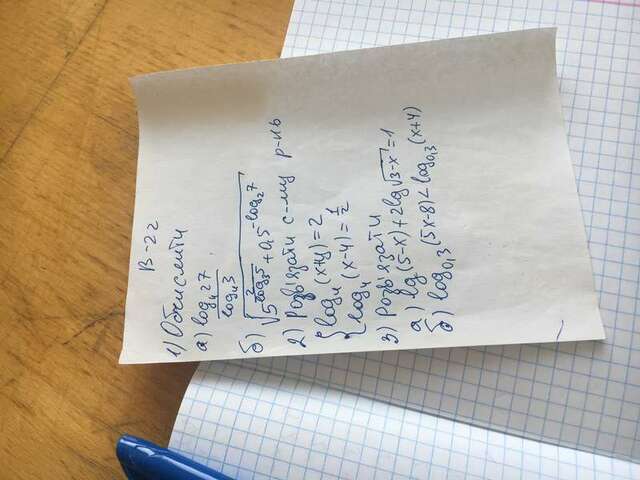 В-22
1) Обчислити
а) log₄27 / log₄3
б) √(5^(2/log₃5) + 0,5^(-log₂7))
2) Розв'язати с-му р-нь
{ log₄(x+y)=2
{ log₄(x-y)=1/2
3) Розв'язати
а) lg(5-x)+2lg√(3-x)=1
б) log₀,₃(5x-8)<log₀,₃(x+4)